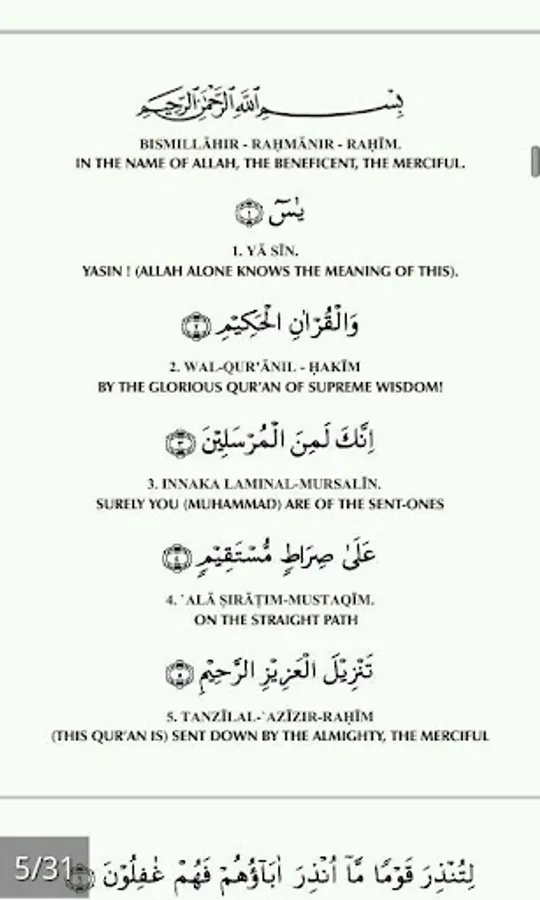 بِسْمِ اللَّهِ الرَّحْمَٰنِ الرَّحِيمِ
BISMILLĀHIR - RAḤMĀNIR - RAḤĪM.
IN THE NAME OF ALLAH, THE BENEFICENT, THE MERCIFUL.
يٰسٓ ۝١
1. YĀ SĪN.
YASIN ! (ALLAH ALONE KNOWS THE MEANING OF THIS).
وَالْقُرْاٰنِ الْحَكِيْمِ ۝٢
2. WAL-QUR'ĀNIL - ḤAKĪM
BY THE GLORIOUS QUR'AN OF SUPREME WISDOM!
اِنَّكَ لَمِنَ الْمُرْسَلِيْنَ ۝٣
3. INNAKA LAMINAL-MURSALĪN.
SURELY YOU (MUHAMMAD) ARE OF THE SENT-ONES
عَلَىٰ صِرَاطٍ مُّسْتَقِيْمٍ ۝٤
4. `ALĀ ṢIRĀṬIM-MUSTAQĪM.
ON THE STRAIGHT PATH
تَنْزِيْلَ الْعَزِيْزِ الرَّحِيْمِ ۝٥
5. TANZĪLAL-`AZĪZIR-RAḤĪM
(THIS QUR'AN IS) SENT DOWN BY THE ALMIGHTY, THE MERCIFUL
لِتُنْذِرَ قَوْمًا مَّآ اُنْذِرَ اٰبَآؤُهُمْ فَهُمْ غٰفِلُوْنَ ۝٦
5/31